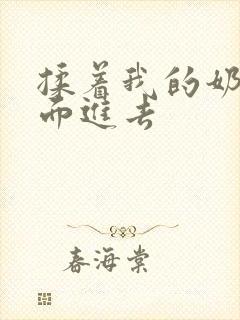 揉着我的奶
而進去
春海棠